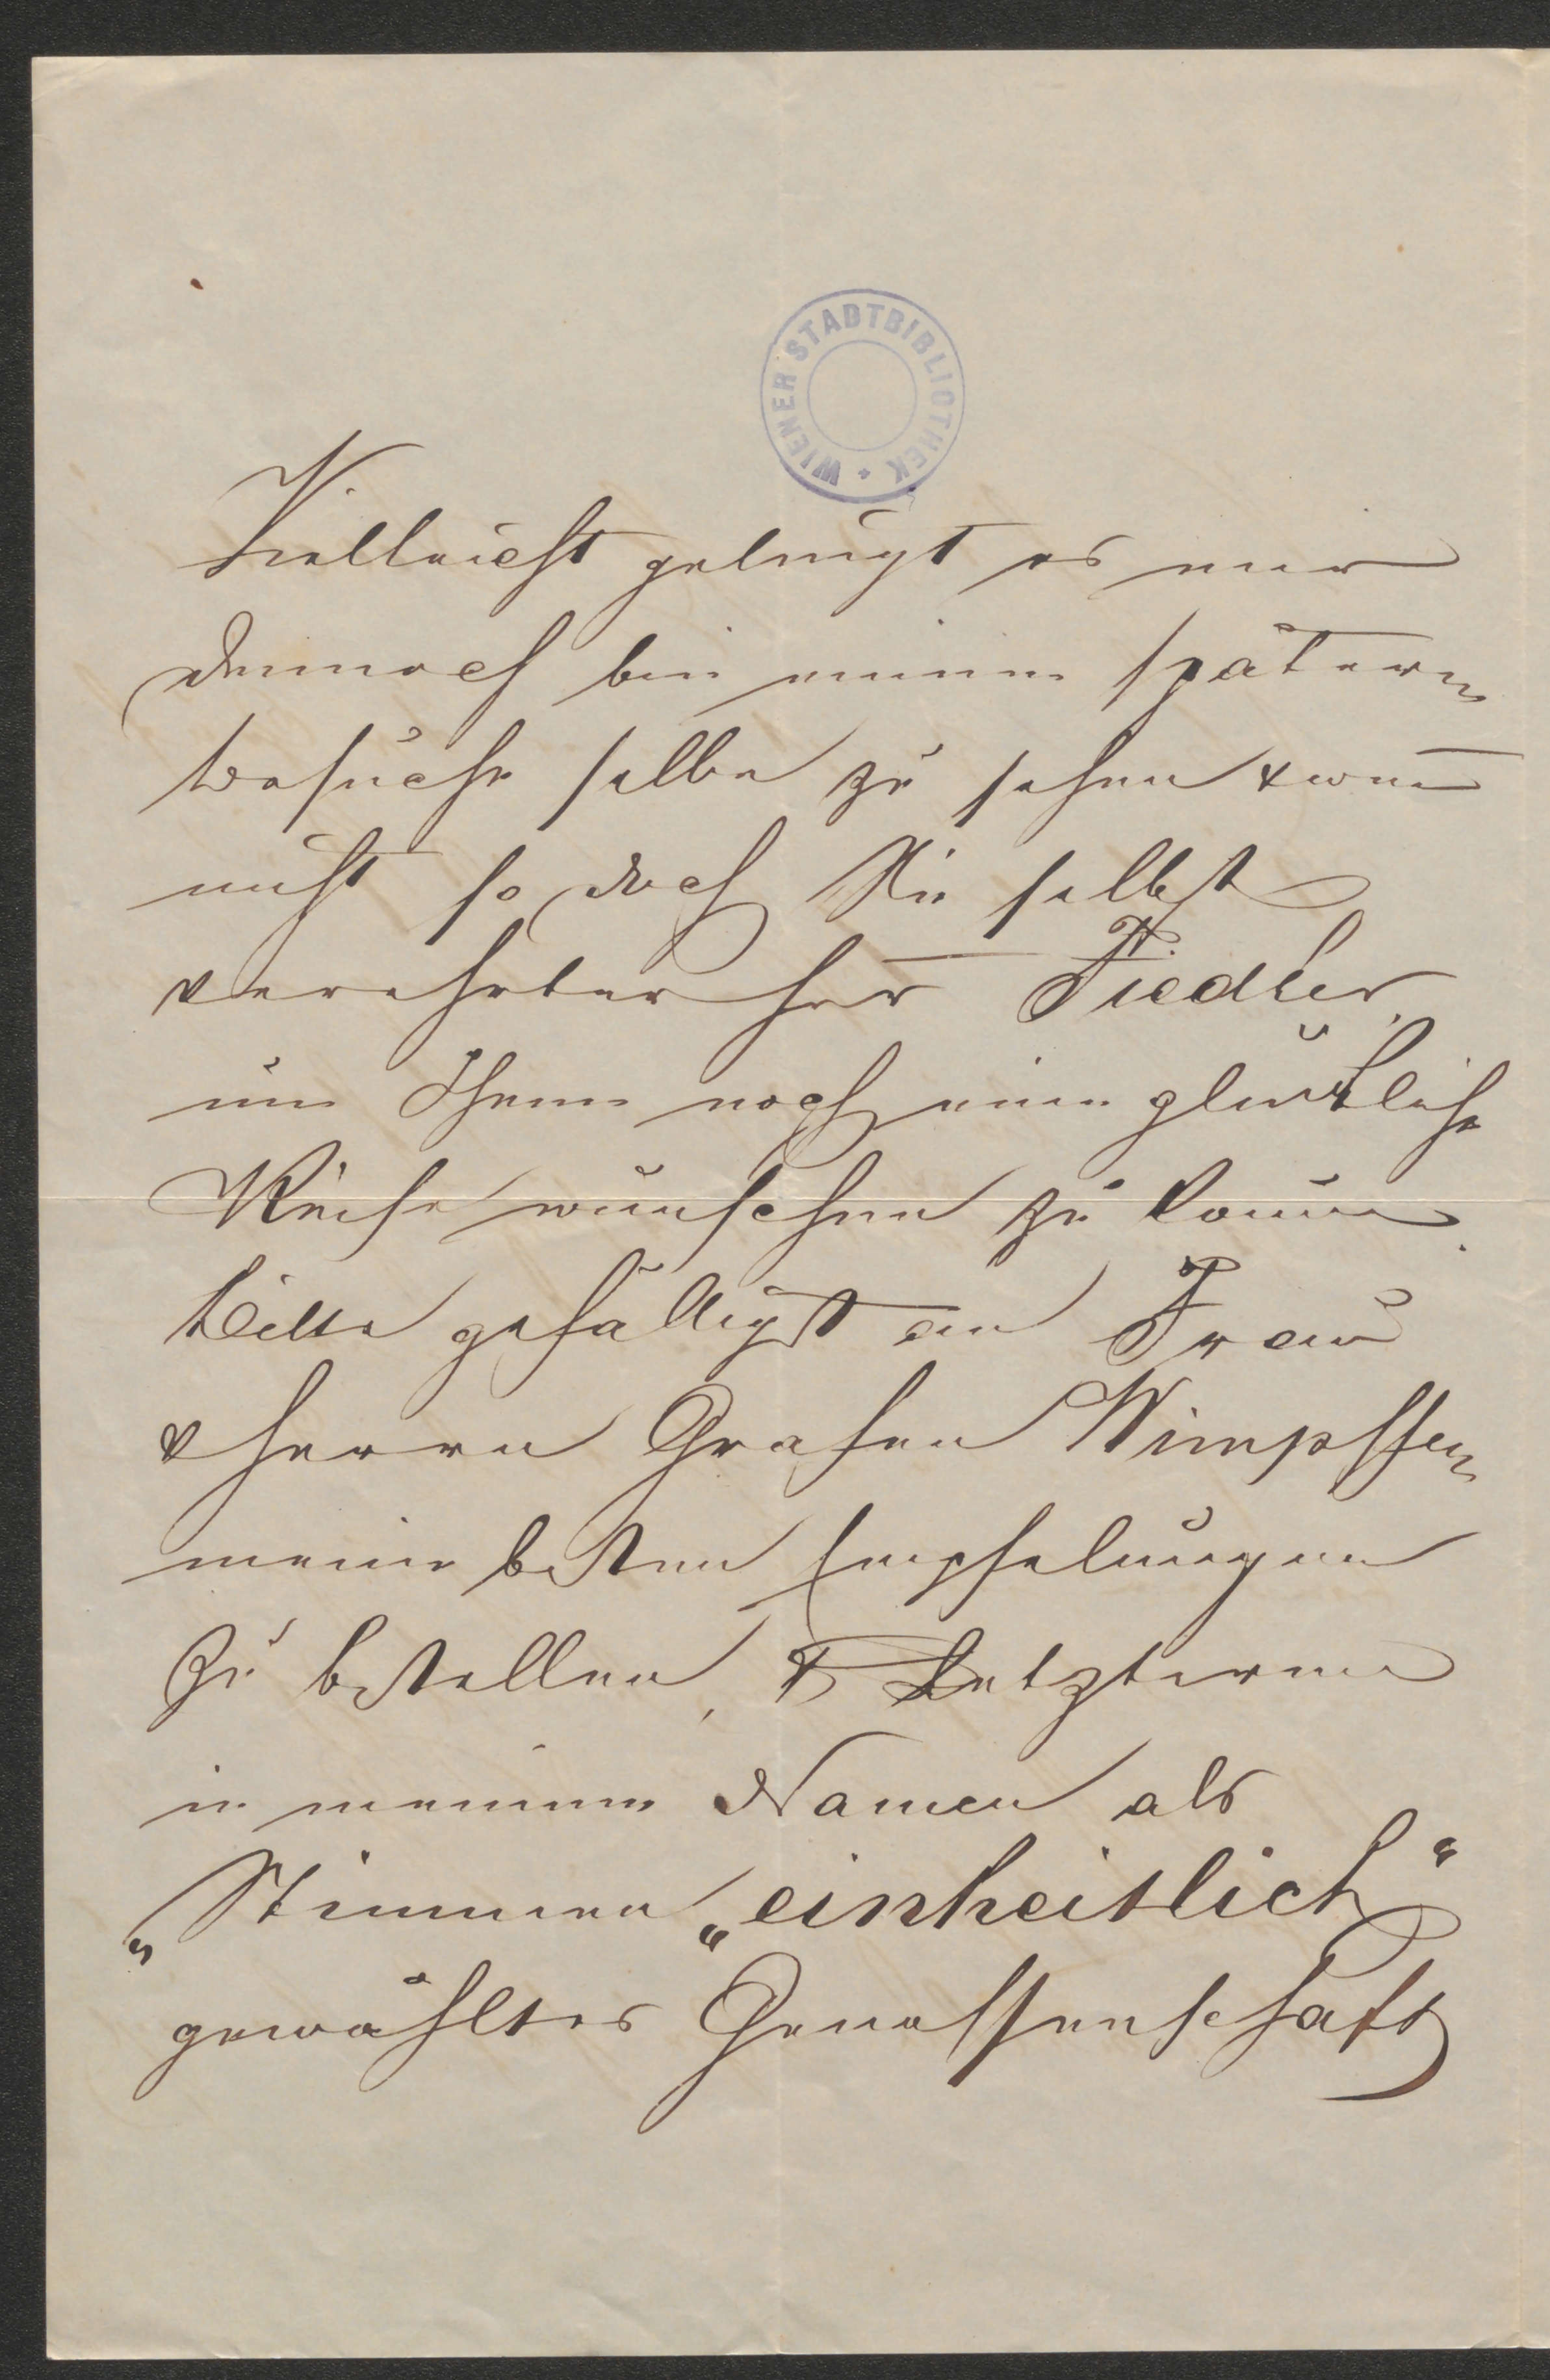 WIENER STADTBIBLIOTHEK
Vielleicht gelingt es mir
dennoch bei meinem spätern
Besuche selbe zu sehen & wen̄
nicht so doch Sie selbst
verehrter Herr Fiedler
um Ihnen noch eine glückliche
Reise wünschen zu können.
Bitte gefälligst an Frau
& Herrn Grafen Wimpffen
meine besten Empfelungen
zu bestellen, & Letzterem
in meinem Namen als
„Stimmen „einheitlich“
gewähltes Genossenschaft